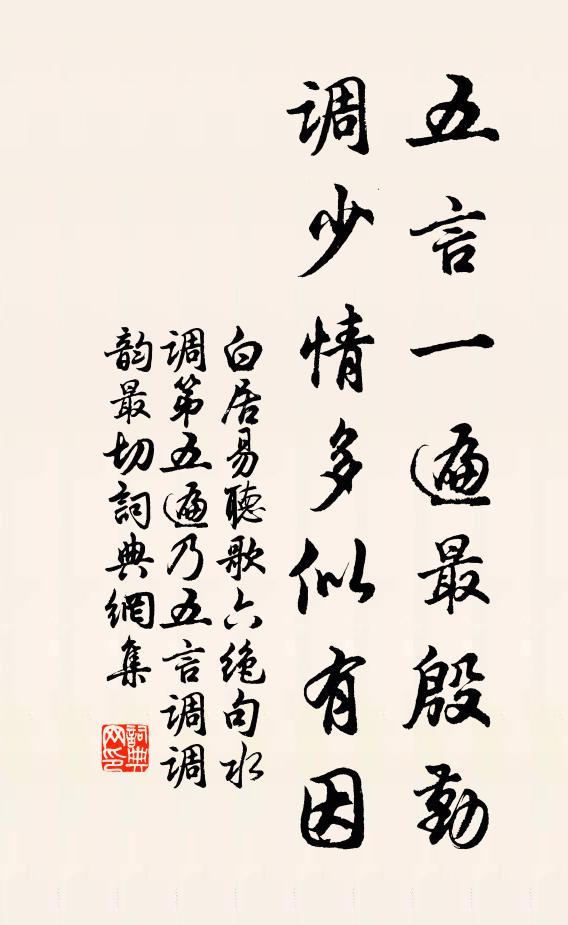 五言一遍最殷勤
调少情多似有因
白居易聽歌六绝句水
调第五遍乃五言调调
韵最切詞典網集
詞典
网印